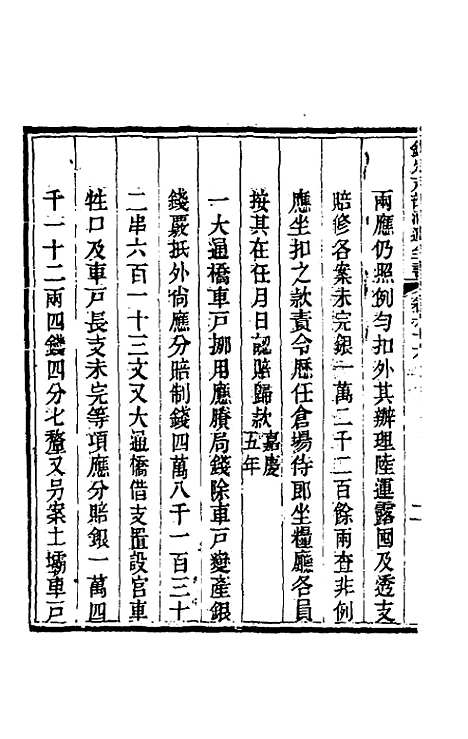 兩應仍照例勻扣外其辦理陸運露囤及透支
賠修各案未完銀一萬二千二百餘兩查非例
應坐扣之款責令歷任倉場侍郎坐糧廳各員
按其在任月日認賠歸款嘉慶五年
一大通橋車戶挪用應賸局錢除車戶變產銀
錢覈抵外尙應分賠制錢四萬八千一百三十
二串六百一十三文又大通橋借支置設官車
牲口及車戶長支未完等項應分賠銀一萬四
千一十二兩四錢四分七釐又另案土壩車戶